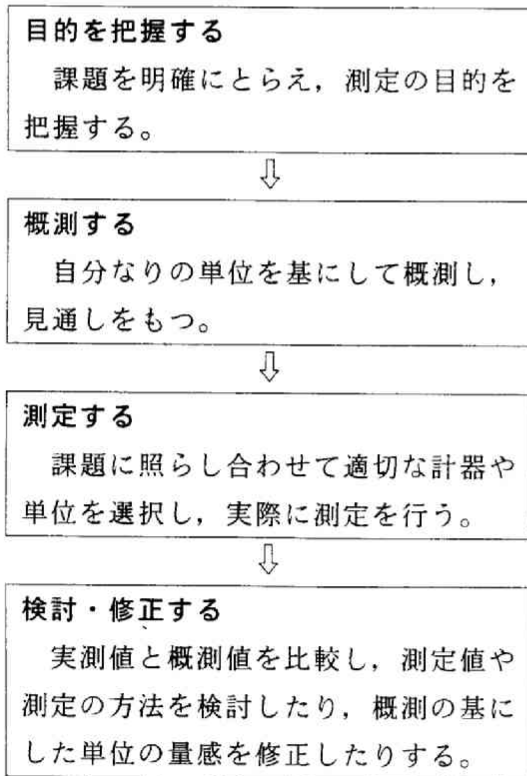 目的を把握する
課題を明確にとらえ，測定の目的を
把握する。
⇩
概測する
自分なりの単位を基にして概測し，
見通しをもつ。
⇩
測定する
課題に照らし合わせて適切な計器や
単位を選択し，実際に測定を行う。
⇩
検討・修正する
実測値と概測値を比較し，測定値や
測定の方法を検討したり，概測の基に
した単位の量感を修正したりする。